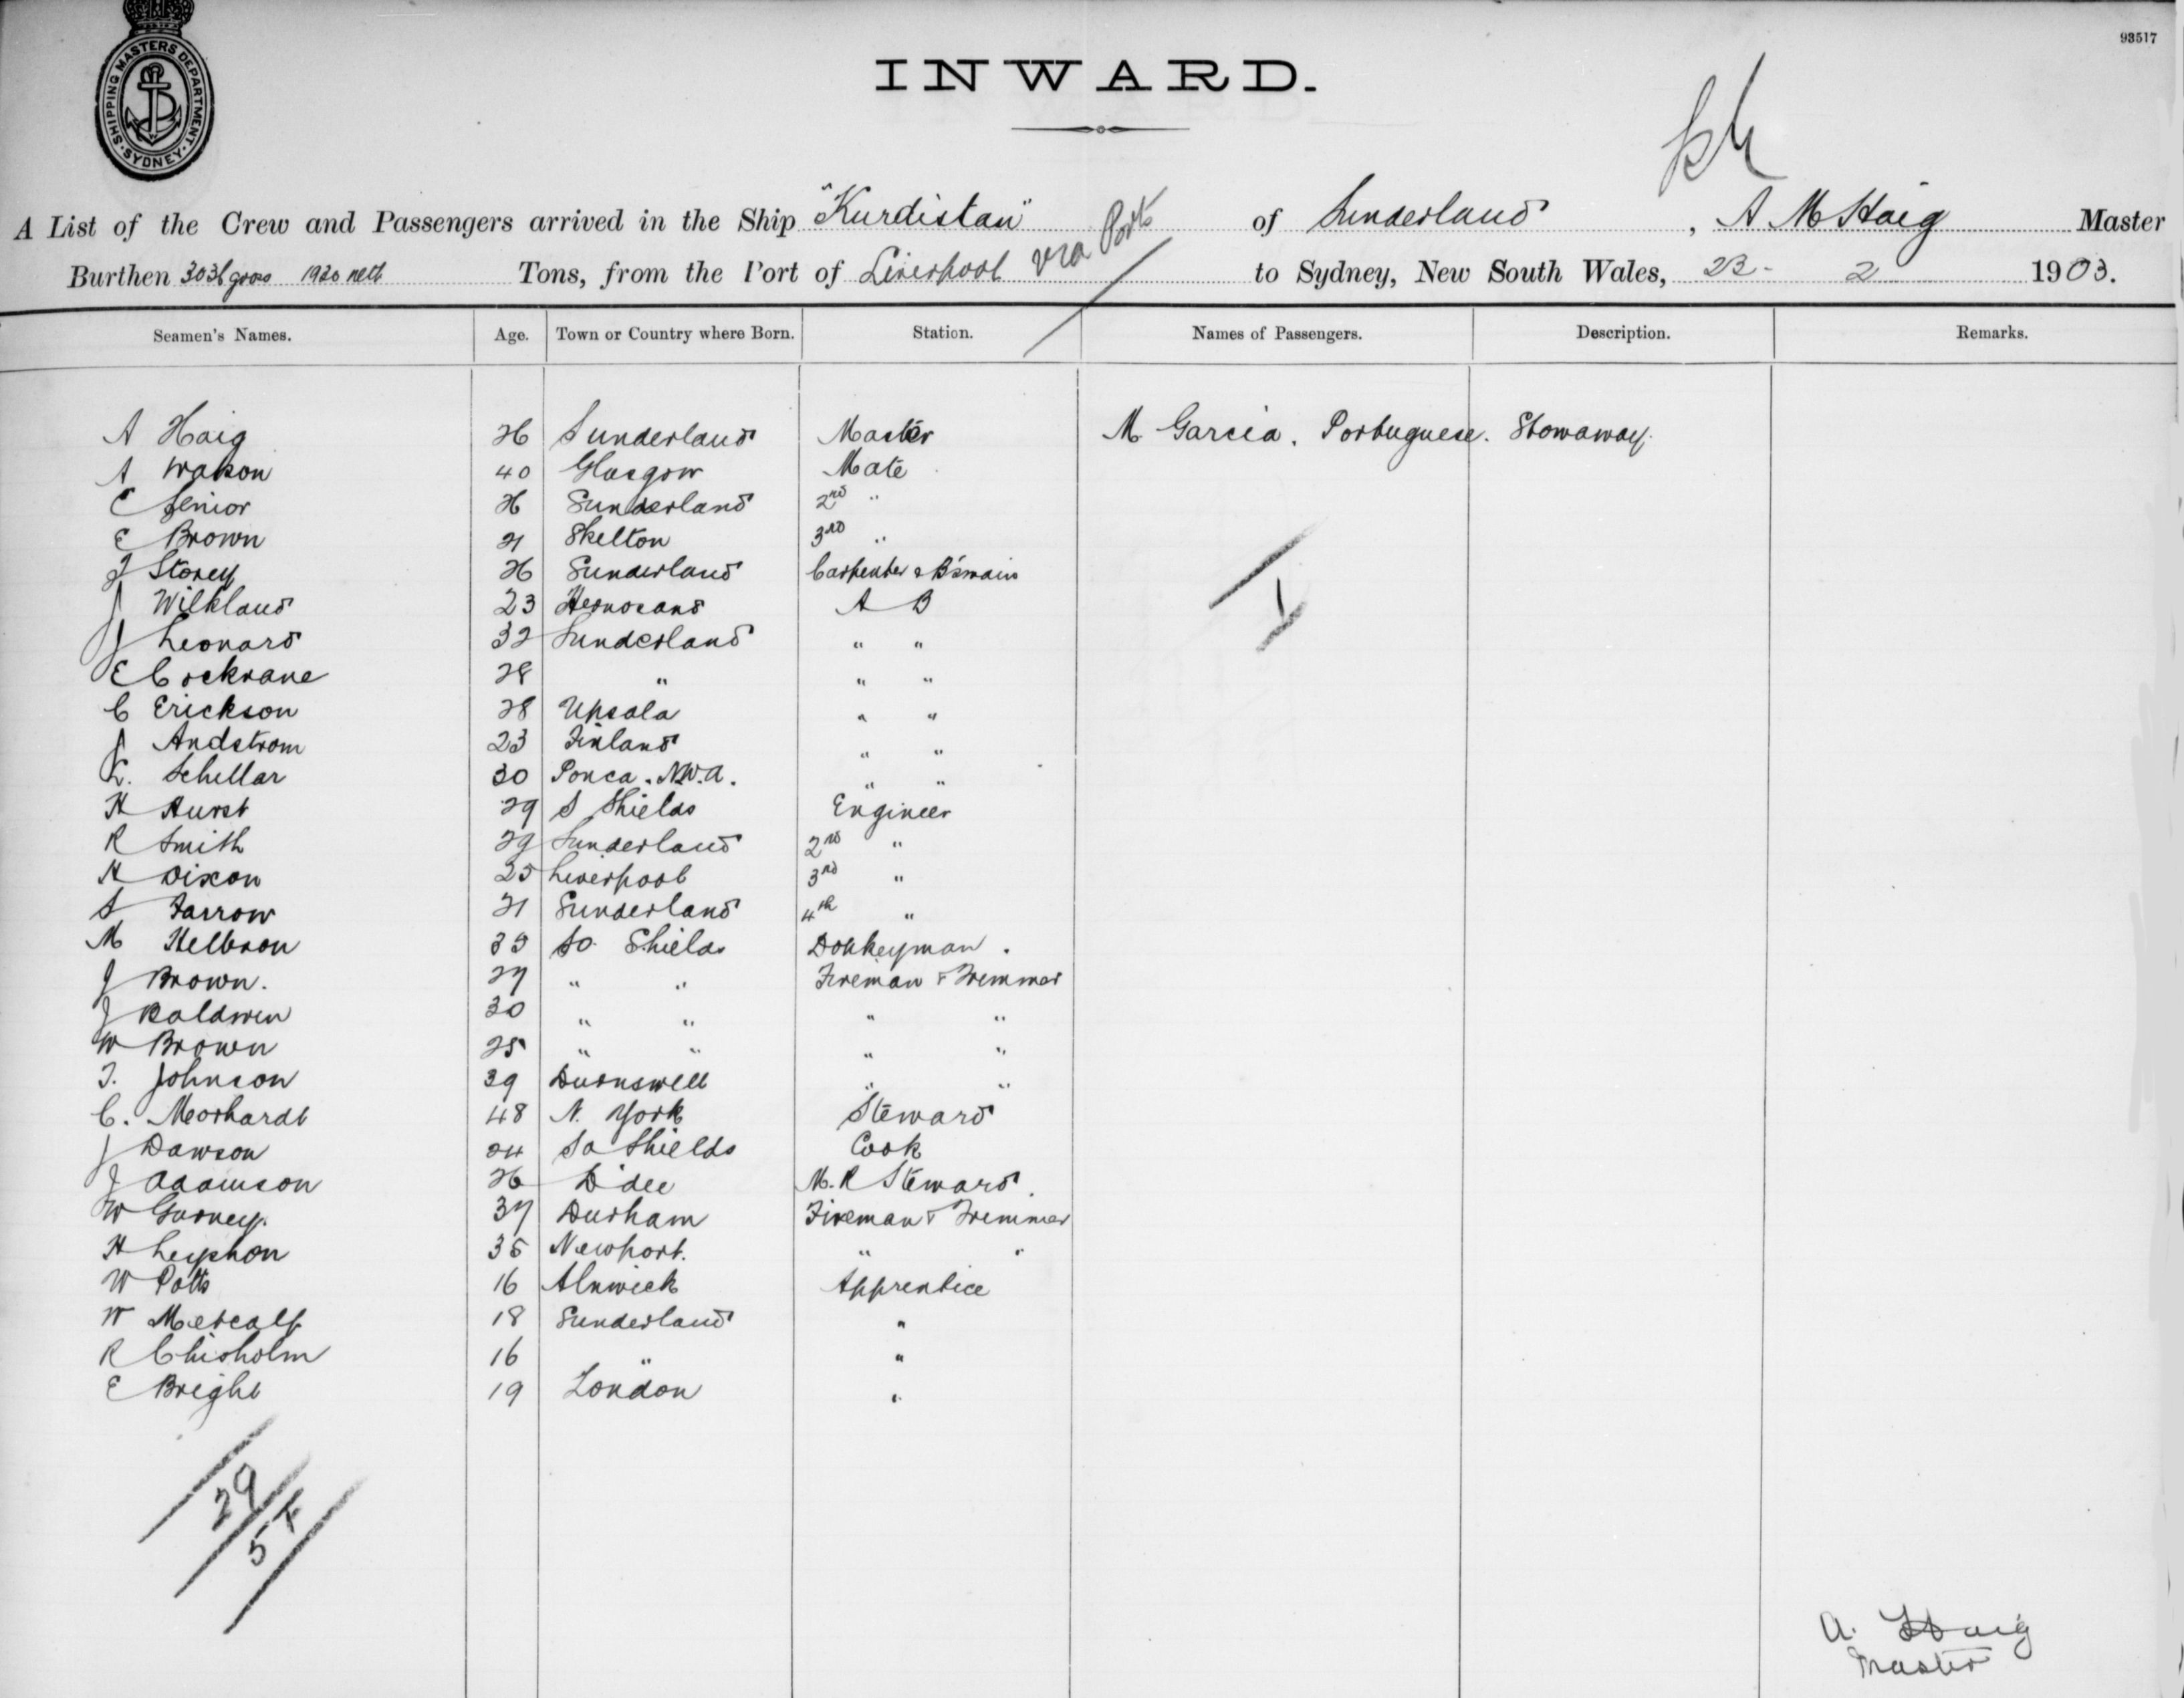 93517
SHIPPING MASTERS DEPARTMENT. SYDNEY.
INWARD.
A List of the Crew and Passengers arrived in the Ship "Kurdistan" of Sunderland, A M Haig Master
Burthen 3036 gross 1920 nett Tons, from the Port of Liverpool via Ports to Sydney, New South Wales, 23- 2 1903.
Seamen's Names. Age. Town or Country where Born. Station. Names of Passengers. Description. Remarks.
A Haig 26 Sunderland Master M Garcia. Portuguese. Stowaway.
A Watson 40 Glasgow Mate
C Senior 26 Sunderland 2nd "
E Brown 21 Skelton 3rd "
J Storey 26 Sunderland Carpenter & B'swain
J Wilkland 23 Hernosand A B
J Leonard 32 Sunderland " "
E Cockrane 28 " " "
C Erickson 28 Upsala " "
J Andstrom 23 Finland " "
L. Schellar 30 Ponca. N.W.A. " "
H Hurst 29 S Shields Engineer
R Smith 29 Sunderland 2nd "
H Dixon 25 Liverpool 3rd "
S Farrow 21 Sunderland 4th "
M Helbron 35 So Shields Donkeyman.
J Brown. 27 " " Fireman & Tremmer
J Baldwin 30 " " " "
W Brown 25 " " " "
T. Johnson 39 Durnswell " "
C. Morhardt 48 N. York Steward
J Dawson 24 So Shields Cook
J Adamson 26 D'dee M. R Steward.
W Gurney. 37 Durham Fireman & Tremmer
H Leyshon 35 Newport. " "
W Potts 16 Alnwick Apprentice
W Metcalf 18 Sunderland "
R Chisholm 16 " "
E Bright 19 London "
1
29
5 F
A. Haig
Master